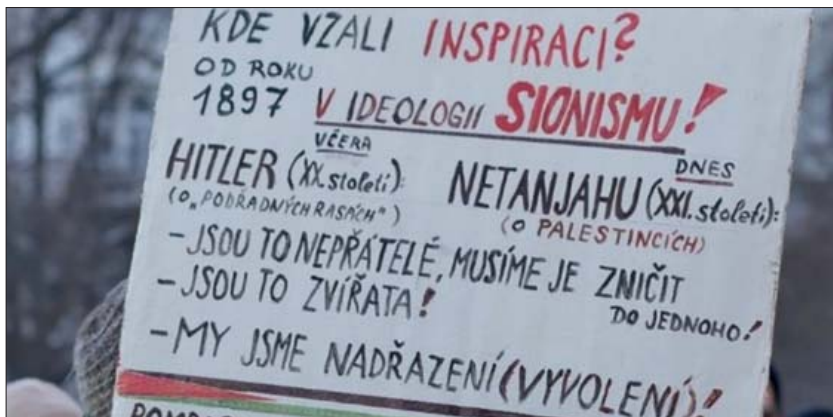 KDE VZALI INSPIRACI?
OD ROKU
1897 V IDEOLOGII SIONISMU!
VČERA
HITLER (XX. století):
(O „PODŘADNÝCH RASÁCH")
DNES
NETANJAHU (XXI. století):
(O PALESTINCÍCH)
- JSOU TO NEPŘÁTELÉ, MUSÍME JE ZNIČIT
DO JEDNOHO!
- JSOU TO ZVÍŘATA!
- MY JSME NADŘAZENÍ (VYVOLENÍ)!